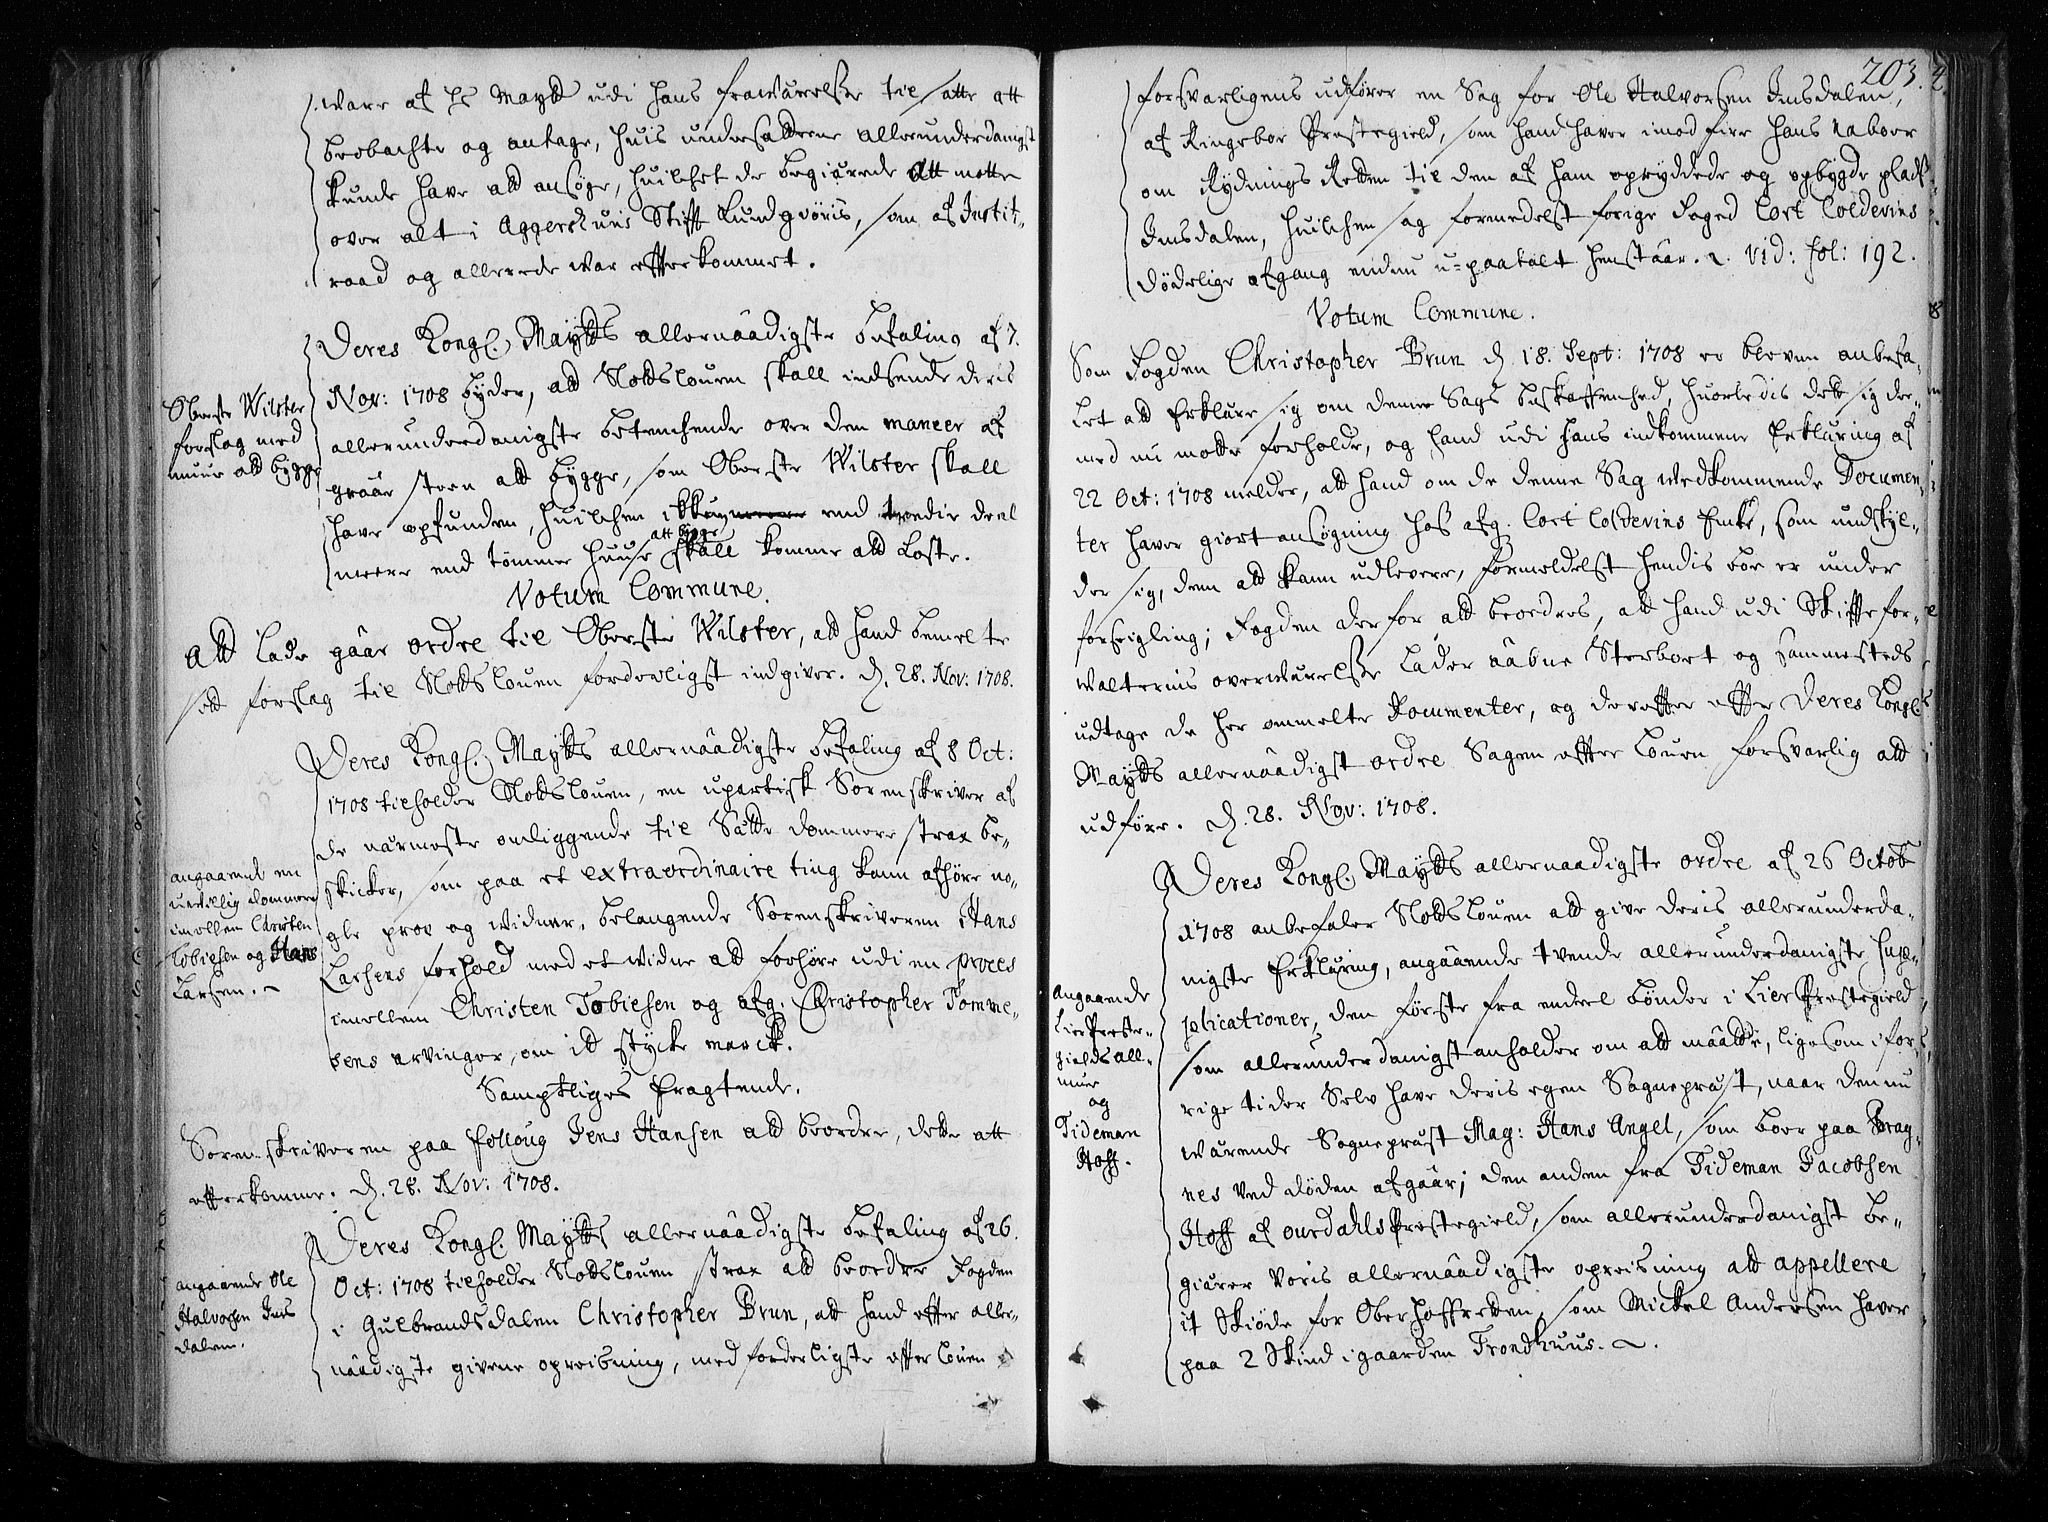 ware af hs Maytt udi hans frawærelse til satte att
beobachte og antage, huis undersaatterne allerunderdanigst
kunde have att ansøge, huilchet de begiærede att motte
over alt i Aggershuus Stifft kundgiøris, som af Justitz-
raad og allerede war efterkommet.
Deres Kongl. Maytts allernaadigste befaling af 7.
Nov: 1708 byder, att Slottslouen skall indsende deris
allerunderdanigste betenchende over den maneer af
graaesteen att bygge, som Oberste Wilster skall
have opfunden, huilchen icke end tredie deel
meere end tømmer huuse att bygge skall komme att koste.
Oberste Wilster
forslag med
muur att bygge
Votum Commune.
Att lade gaae ordre til Oberste Wilster, att hand bemelte
sitt forslag til Slottslouen forderligst indgiver. d. 28. Nov: 1708.
Deres Kongl. Maytts allernaadigste befaling af 8 Oct:
1708 tilholder Slottslouen, en upartisk Sorenskriver af
de nærmeste omliggende til Sætte dommere strax be-
skicker, som paa et extraordinaire ting kann afhøre no-
gle prov og widner, belangende Sorenskriveren Hans
Larsens forhold med et widne att forhøre udi en proces
imellem Christen Tobiesen og afg. Christopher Tomme-
sens arvinger, om it stycke marck.
angaaende en
uvillig dommere
imellem Christen
Tobiesen og Hans
Larsen.
Samptliges Eragtende.
Sorenskriveren paa Folloug Jens Hansen att beordre, dette att
efterkomme. d. 28. Nov: 1708.
Deres Kongl. Maytts allernaadigste befaling af 26.
Oct: 1708 tilholder Slottslouen strax att beordre Fogden
i Gulbrandsdalen Christopher Brun, att hand efter aller-
naadigste givene opreisning, med forderligste efter louen
angaaende Ole
Halvorsen Ims
dalen.
203.
forsvarligens udfører en Sag for Ole Halvorsen Imsdalen,
af Ringeboe Præstegield, som hand haver imod fire hans naboer
om Rydnings Retten til den af ham opryddede og opbygde plads
Imsdalen, huilchen sag formedelst forige Foged Cort Coldevins
dødelige afgang endnu u-paatalt henstaar. Vid: fol: 192.
Votum Commune.
Som Fogden Christopher Brun d. 18. Sept: 1708 er bleven anbefa-
let att Erklære sig om denne Sags beskaffenhed, huorledis dett sig der-
med nu motte forholde, og hand udi hans indkommene Erklæring af
22 Oct: 1708 melder, att hand om de denne Sag vedkommende Documen-
ter haver giort ansøgning hos afg. Cort Coldevins Enke, som undskyl-
der sig, dem att kann udlevere, formedelst hendis boe er under
forseigling; Fogden derfor att beordres, att hand udi Skiffte for-
walternis overwærelse lader aabne Sterboet og sammesteds
udtage de her ommelte Documenter, og derefter efter Deres Kongl.
Maytts allernaadigst ordre Sagen efter Louen forsvarlig att
udføre. d. 28. Nov: 1708.
Deres Kongl. Maytts allernaadigste ordre af 26 Octob
1708 anbefaler Slottslouen att give deris allerunderda-
nigste Erklæring, angaaende tvende allerunderdanigste Sup-
plicationer, den første fra endeel bønder i Lier Præstegield,
som allerunderdanigst anholder om att maatte, ligesom i for-
rige tider Selv have deris egen Sogneprest, naar den nu
wærende Sogneprest Mag: Hans Angel, som boer paa Brag-
nes ved døden afgaar; den anden fra Tideman Jacobsen
Hoff af ourdahls Præstegield, som allerunderdanigst be-
giærer Voris allernaadigste opreisning att appellere
it Skiøde for Oberhoffretten, som Mickel Andersen haver
paa 2 Skind i gaarden Trondhuus.
Angaaende
Lier Præste-
gields all-
mue
og
Tideman
Hoff.